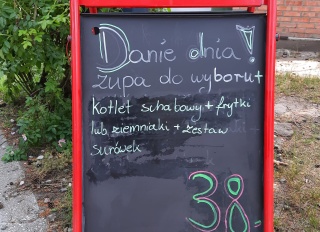 Danie dnia!
zupa do wyboru +
kotlet schabowy + frytki
lub ziemniaki + zestaw
surówek
38 =